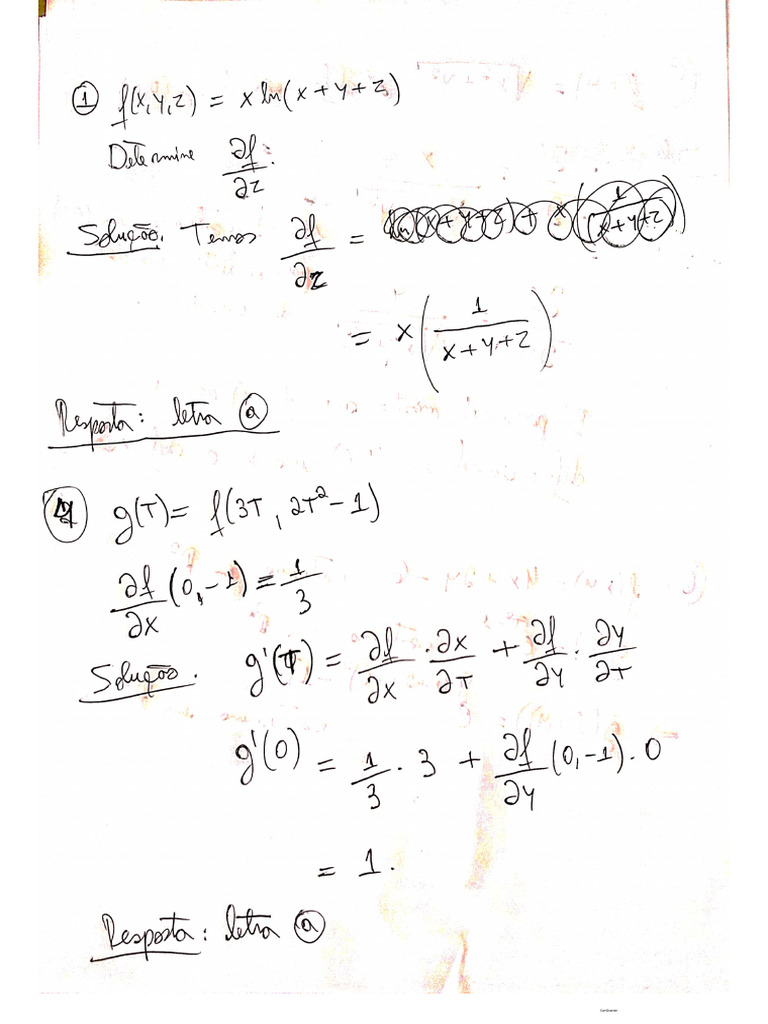 ① f(x,y,z) = x ln(x+y+z)
Determine ∂f/∂z.
Solução. Temos ∂f/∂z = ln(x+y+z) + x(1/(x+y+z))
= x(1/(x+y+z))
Resposta: letra ⓐ
g(T) = f(3T, 2T² - 1)
∂f/∂x (0,-1) = 1/3
Solução. g'(T) = ∂f/∂x · ∂x/∂T + ∂f/∂y · ∂y/∂T
g'(0) = 1/3 · 3 + ∂f/∂y (0,-1) · 0
= 1.
Resposta: letra ⓐ
CamScanner